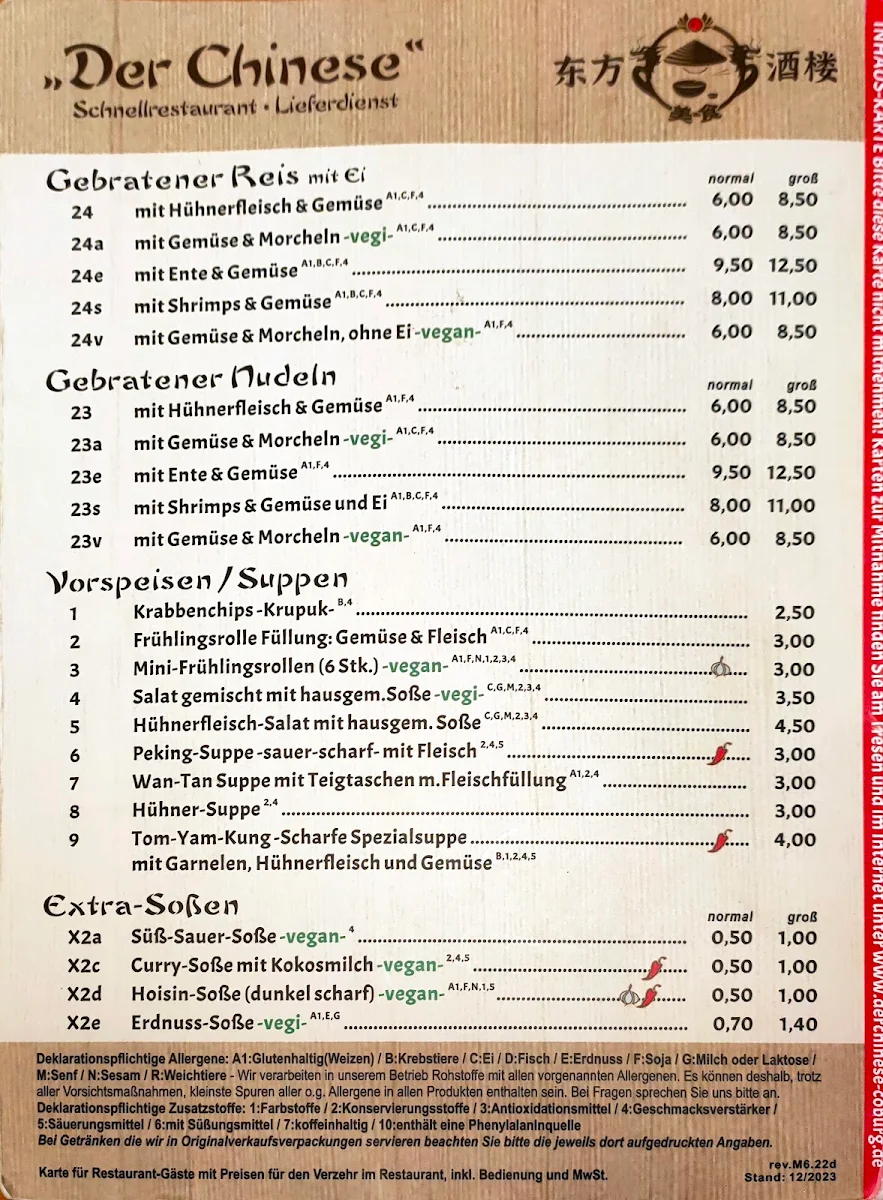 „Der Chinese“
Schnellrestaurant • Lieferdienst
东方 酒楼
美食
Gebratener Reis mit Ei normal groß
24 mit Hühnerfleisch & Gemüse A1,C,F,4 6,00 8,50
24a mit Gemüse & Morcheln -vegi- A1,C,F,4 6,00 8,50
24e mit Ente & Gemüse A1,B,C,F,4 9,50 12,50
24s mit Shrimps & Gemüse A1,B,C,F,4 8,00 11,00
24v mit Gemüse & Morcheln, ohne Ei -vegan- A1,F,4 6,00 8,50
Gebratener Nudeln normal groß
23 mit Hühnerfleisch & Gemüse A1,F,4 6,00 8,50
23a mit Gemüse & Morcheln -vegi- A1,C,F,4 6,00 8,50
23e mit Ente & Gemüse A1,F,4 9,50 12,50
23s mit Shrimps & Gemüse und Ei A1,B,C,F,4 8,00 11,00
23v mit Gemüse & Morcheln -vegan- A1,F,4 6,00 8,50
Vorspeisen / Suppen
1 Krabbenchips -Krupuk- B,4 2,50
2 Frühlingsrolle Füllung: Gemüse & Fleisch A1,C,F,4 3,00
3 Mini-Frühlingsrollen (6 Stk.) -vegan- A1,F,N,1,2,3,4 3,00
4 Salat gemischt mit hausgem.Soße -vegi- C,G,M,2,3,4 3,50
5 Hühnerfleisch-Salat mit hausgem. Soße C,G,M,2,3,4 4,50
6 Peking-Suppe -sauer-scharf- mit Fleisch 2,4,5 3,00
7 Wan-Tan Suppe mit Teigtaschen m.Fleischfüllung A1,2,4 3,00
8 Hühner-Suppe 2,4 3,00
9 Tom-Yam-Kung -Scharfe Spezialsuppe 4,00
mit Garnelen, Hühnerfleisch und Gemüse B,1,2,4,5
Extra-Soßen normal groß
X2a Süß-Sauer-Soße -vegan- 4 0,50 1,00
X2c Curry-Soße mit Kokosmilch -vegan- 2,4,5 0,50 1,00
X2d Hoisin-Soße (dunkel scharf) -vegan- A1,F,N,1,5 0,50 1,00
X2e Erdnuss-Soße -vegi- A1,E,G 0,70 1,40
Deklarationspflichtige Allergene: A1:Glutenhaltig(Weizen) / B:Krebstiere / C:Ei / D:Fisch / E:Erdnuss / F:Soja / G:Milch oder Laktose /
M:Senf / N:Sesam / R:Weichtiere - Wir verarbeiten in unserem Betrieb Rohstoffe mit allen vorgenannten Allergenen. Es können deshalb, trotz
aller Vorsichtsmaßnahmen, kleinste Spuren aller o.g. Allergene in allen Produkten enthalten sein. Bei Fragen sprechen Sie uns bitte an.
Deklarationspflichtige Zusatzstoffe: 1:Farbstoffe / 2:Konservierungsstoffe / 3:Antioxidationsmittel / 4:Geschmacksverstärker /
5:Säuerungsmittel / 6:mit Süßungsmittel / 7:koffeinhaltig / 10:enthält eine Phenylalaninquelle
Bei Getränken die wir in Originalverkaufsverpackungen servieren beachten Sie bitte die jeweils dort aufgedruckten Angaben.
Karte für Restaurant-Gäste mit Preisen für den Verzehr im Restaurant, inkl. Bedienung und MwSt.
rev.M6.22d
Stand: 12/2023
INHAUS-KARTE Bitte diese Karte nicht mitnehmen! Karten zur Mitnahme finden Sie am Tresen und im Internet unter www.derchinese-coburg.de